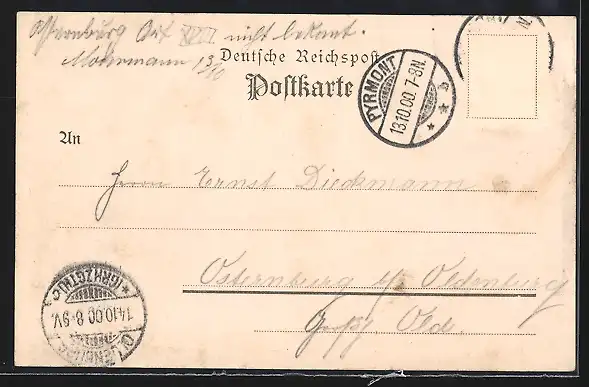 Osternburg Bez XVII nicht bekannt.
Mohrmann 13/10
Deutsche Reichspost
Postkarte
PYRMONT
13.10.00. 7-8N.
An
Herrn Ernst Dieckmann
Osternburg b/ Oldenburg
Old.
14.10.00. 8-9V.